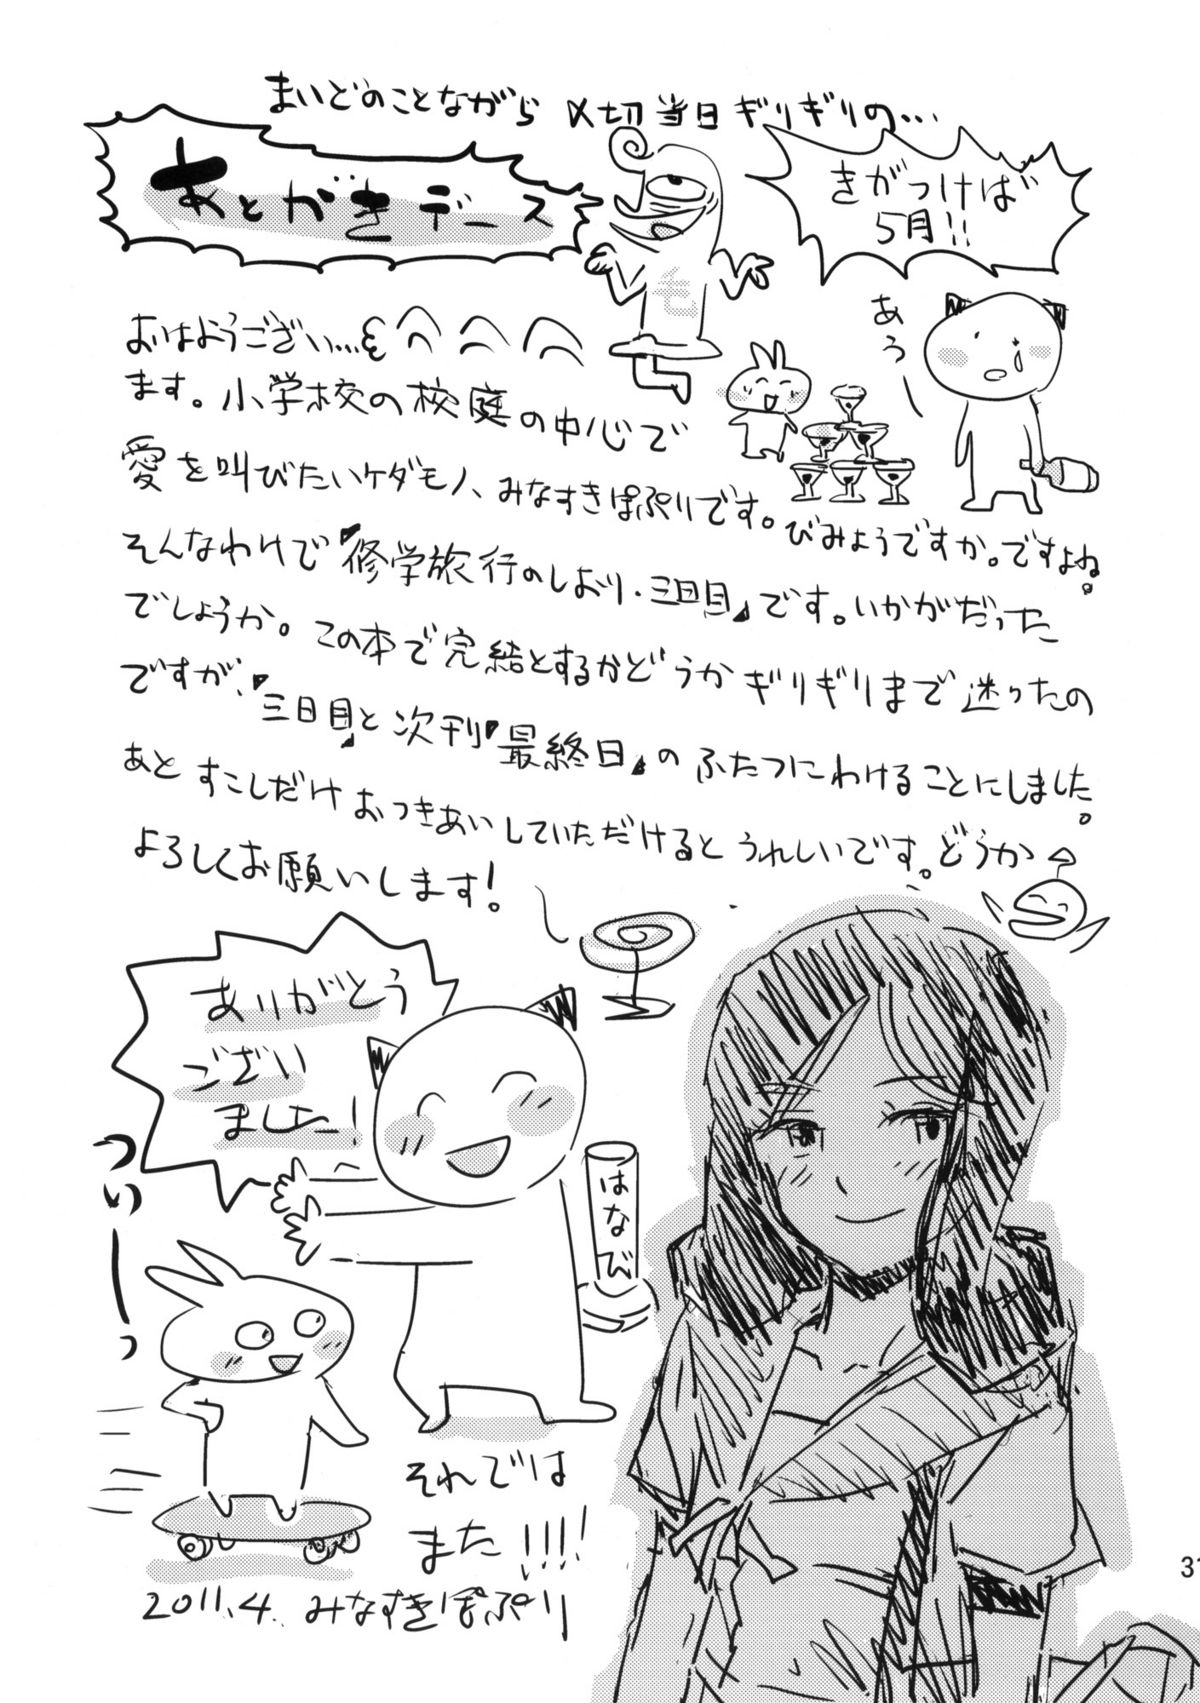 まいどのことながら 〆切当日ギリギリの…
あとがきデース
きがつけば
5月!!
毛
あう
おはようござい…
ます。小学校の校庭の中心で
愛を叫びたいケダモノ、みなすきぽぷりです。びみょうですか。ですよね。
そんなわけで『修学旅行のしおり・三日目』です。いかがだった
でしょうか。この本で完結とするかどうかギリギリまで迷ったの
ですが、『三日目』と次刊『最終日』のふたつにわけることにしました。
あとすこしだけおつきあいしていただけるとうれしいです。どうか
よろしくお願いします!
ありがとう
ござい
ました!
つぃーっ
はなび
それでは
また!!!!
2011.4. みなすきぽぷり